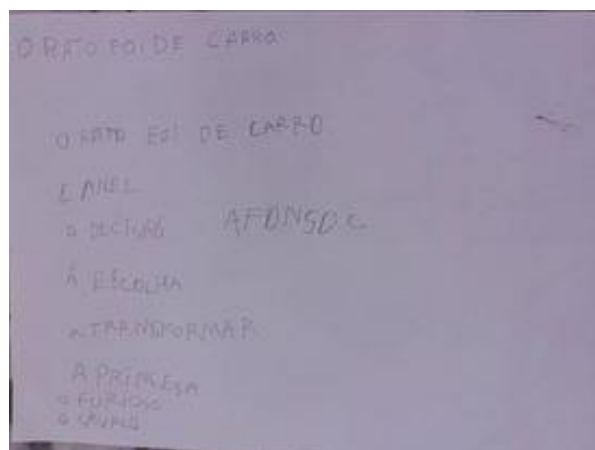 O RATO FOI DE CARRO
O RATO FOI DE CARRO
ANEL
AFONSO C
A ESCOLHA
TRANSFORMAR
A PRINCESA
O FURIOSO